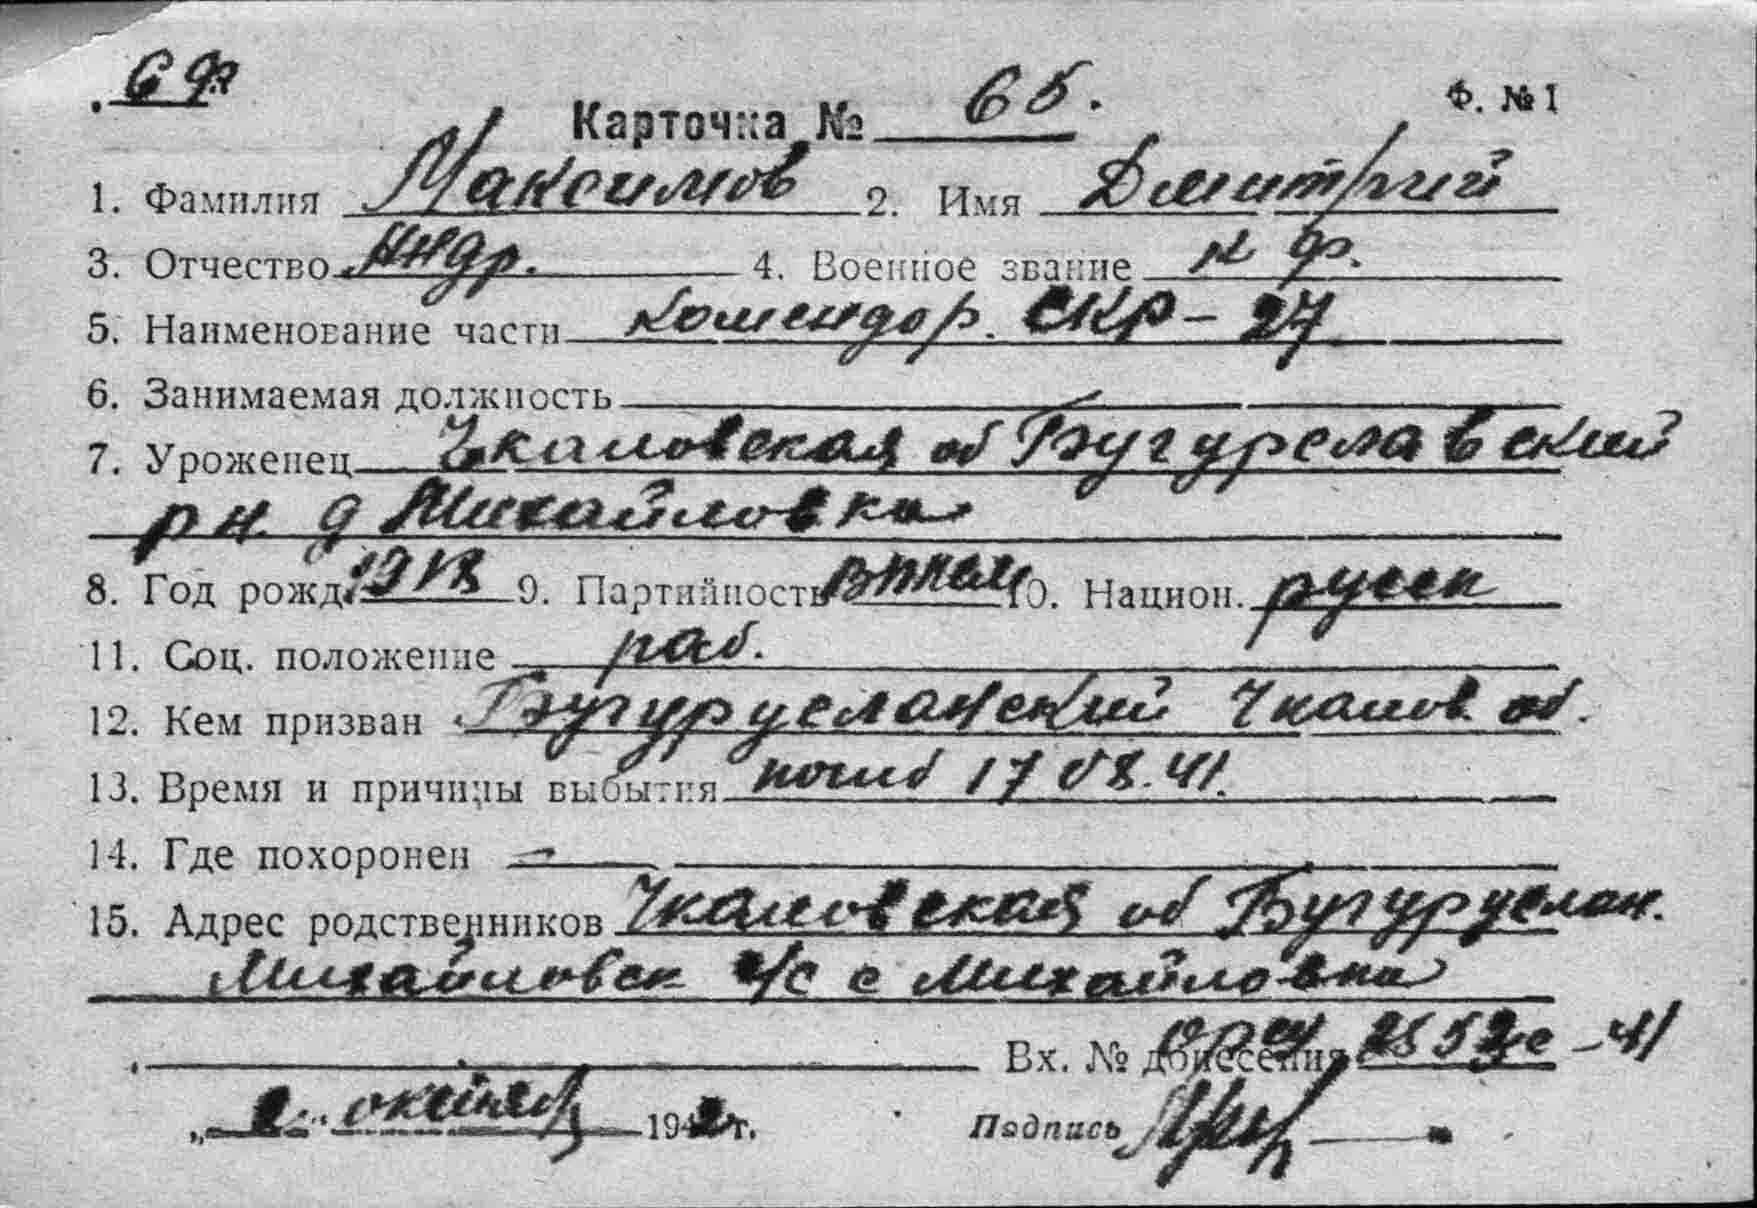 СФ
Карточка № 65.
Ф. № 1
1. Фамилия Максимов 2. Имя Дмитрий
3. Отчество Андр. 4. Военное звание к ф.
5. Наименование части комендор. СКР-27
6. Занимаемая должность
7. Уроженец Чкаловская об Бугурславский
рн. д Михайловка
8. Год рожд. 9. Партийность 10. Национ. русск
11. Соц. положение раб.
12. Кем призван Бугурусланский Чкалов. об.
13. Время и причины выбытия погиб 17 08.41.
14. Где похоронен —
15. Адрес родственников Чкаловская об Бугуруслан.
Михайловск с/с с Михайловка
Вх. № донесения -41
„2" октября 1942 г. Подпись